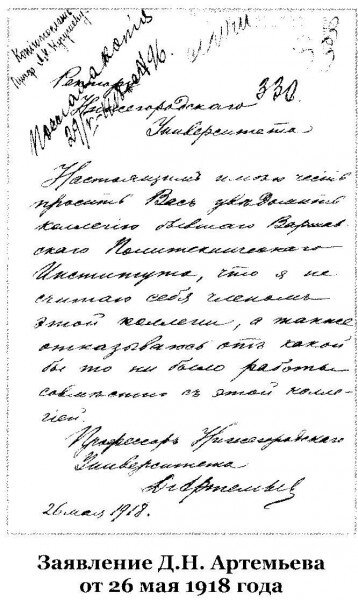 Ректору
Нижегородскаго
Университета
338.
Настоящимъ имѣю честь
просить Васъ увѣдомить
коллегію бывшаго Варшав
скаго Политехническаго
Института, что я не
считаю себя членомъ
этой коллегіи, а также
отказываюсь отъ какой
бы то ни было работы
совмѣстно съ этой колле-
гіей.
Профессоръ Нижегородскаго
Университета
ДАртемьев
26 мая 1918.
Заявление Д.Н. Артемьева
от 26 мая 1918 года